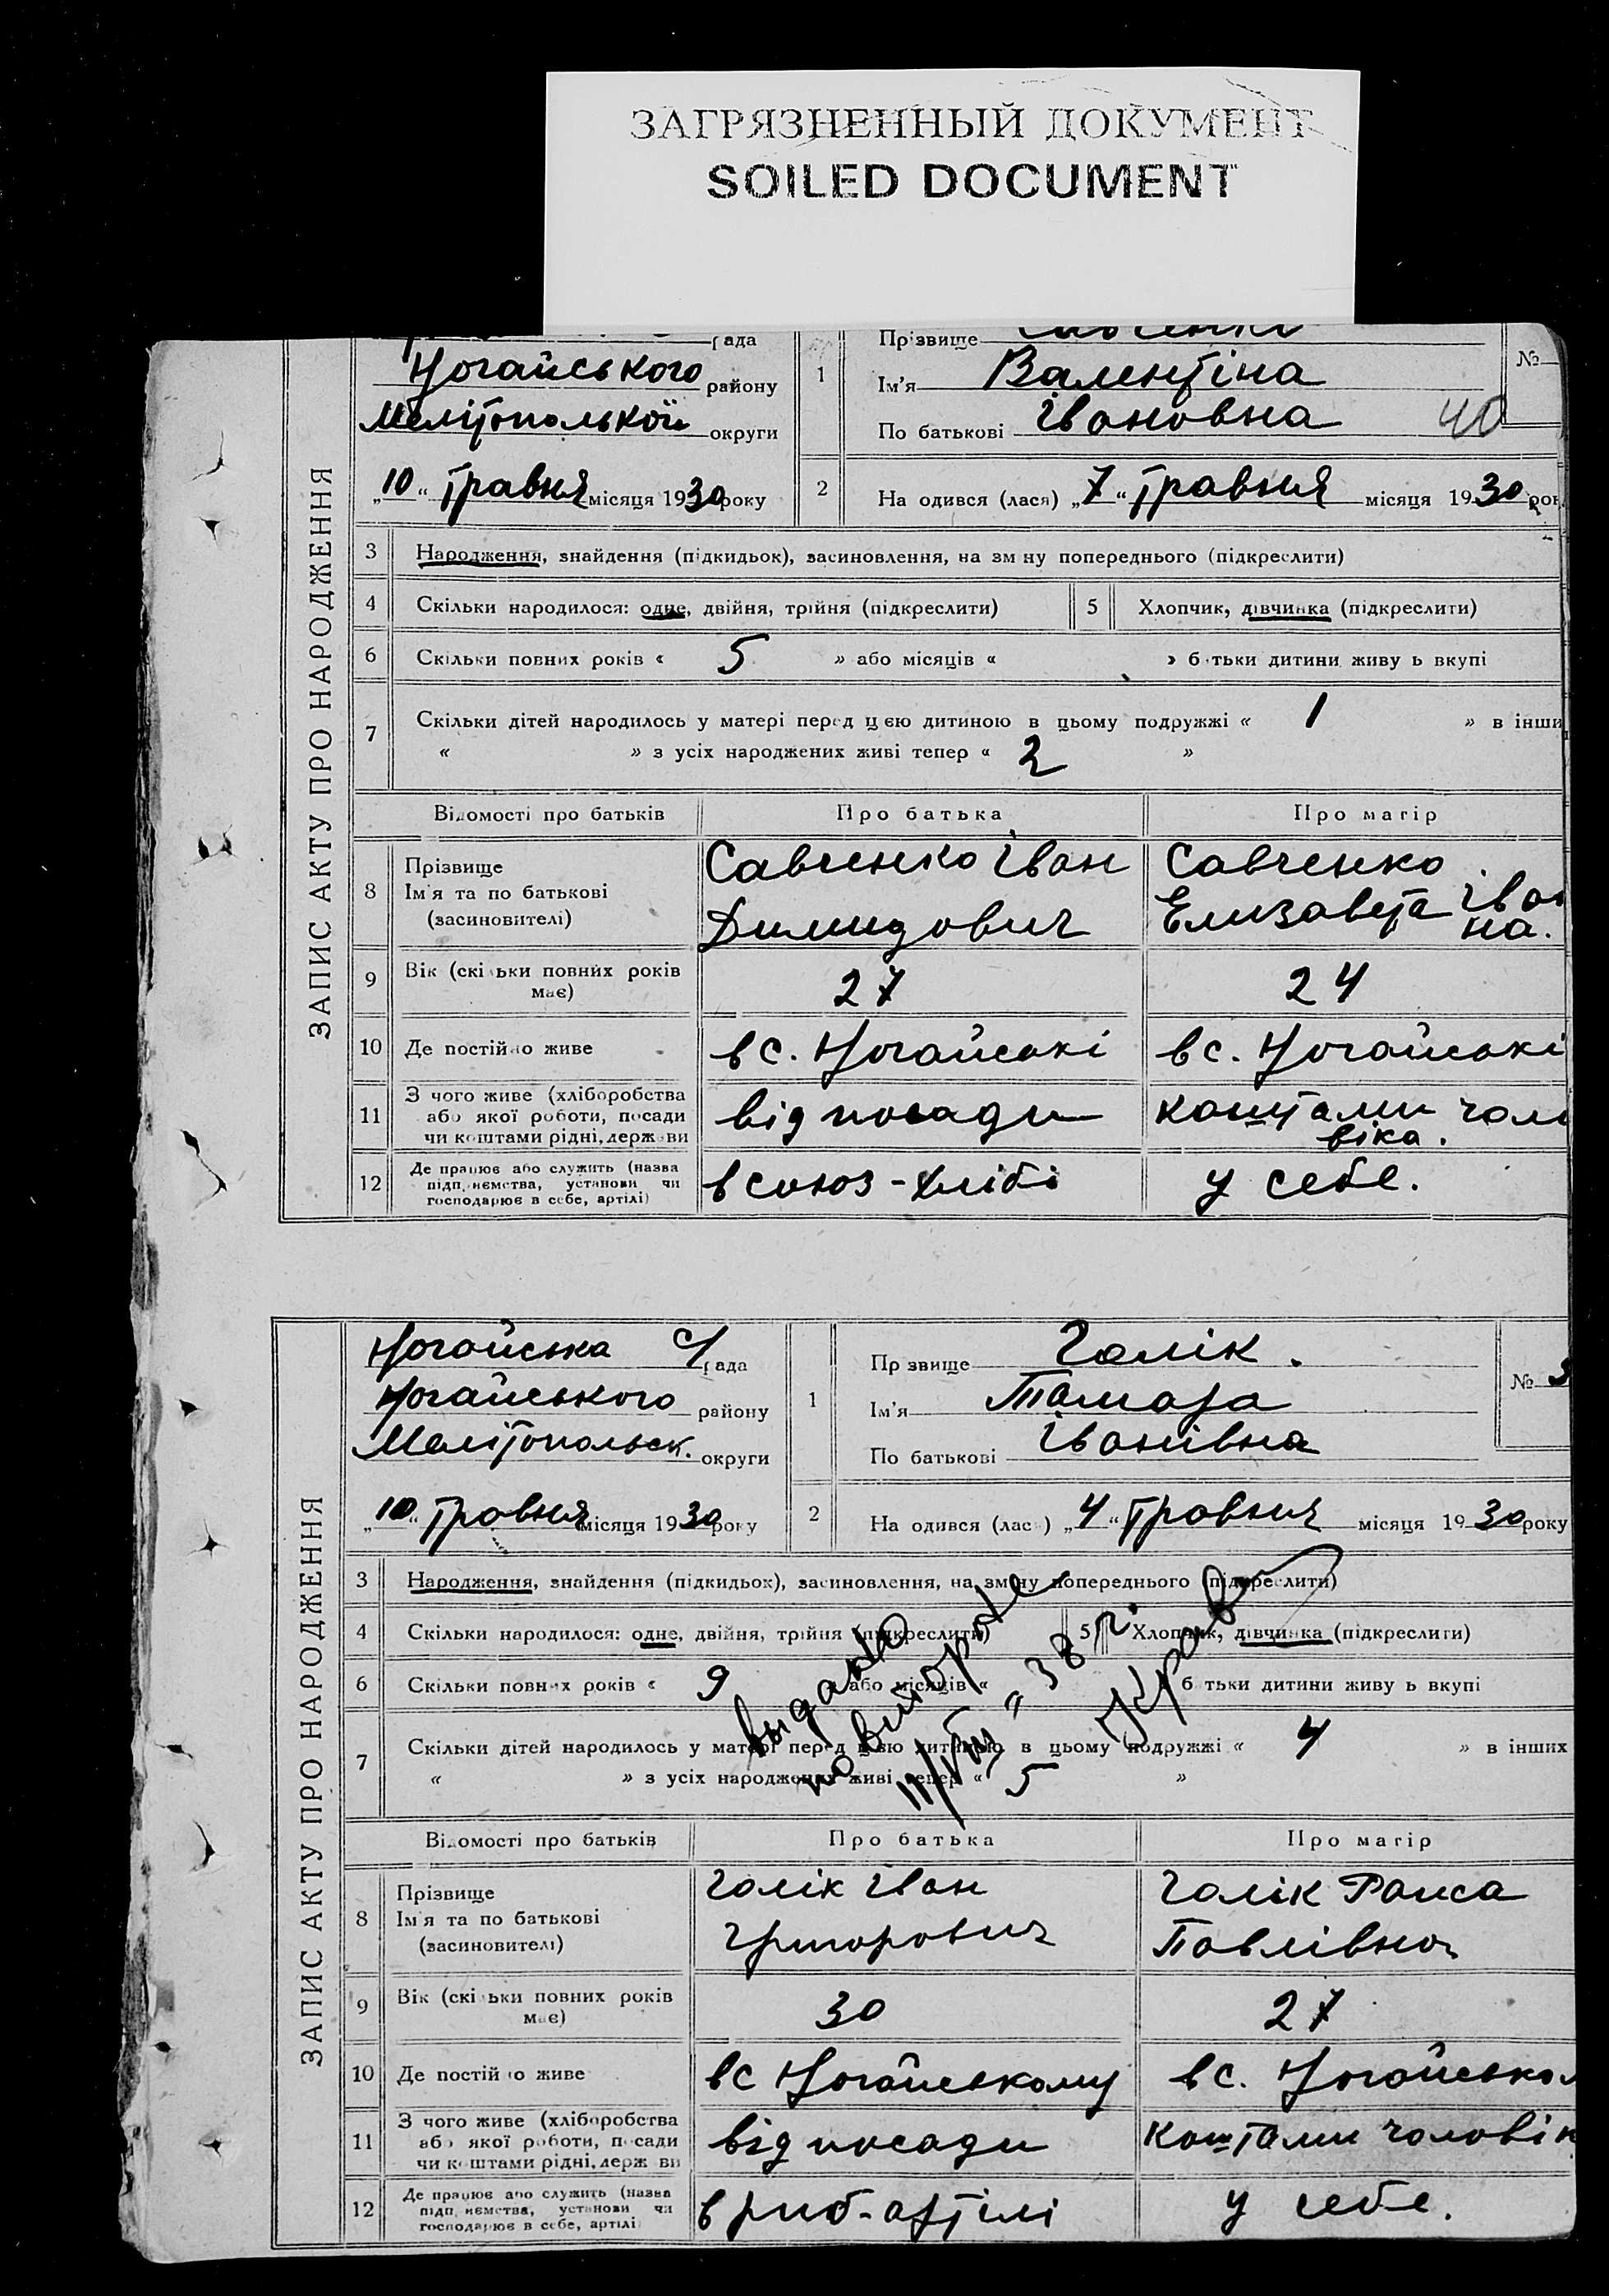 ЗАГРЯЗНЕННЫЙ ДОКУМЕНТ
SOILED DOCUMENT
ЗАПИС АКТУ ПРО НАРОДЖЕННЯ
рада
Ногайського району
Мелітопольської округи
„10“ травня місяця 1930 року
1
Прізвище
Ім'я Валентіна
По батькові Івановна
№
40
2
Народився (лася) „7“ травня місяця 1930 рок
3 Народження, знайдення (підкидьок), засиновлення, на зміну попереднього (підкреслити)
4 Скільки народилося: одне, двійня, трійня (підкреслити) 5 Хлопчик, дівчинка (підкреслити)
6 Скільки повних років « 5 » або місяців « » батьки дитини живуть вкупі
7 Скільки дітей народилось у матері перед цією дитиною в цьому подружжі « 1 » в інши
« » з усіх народжених живі тепер « 2 »
Відомості про батьків Про батька Про матір
8 Прізвище Ім'я та по батькові (засиновителі)
Савченко Іван Димидович
Савченко Елизавета Іван на.
9 Вік (скільки повних років має) 27 24
10 Де постійно живе в с. Ногайські в с. Ногайські
11 З чого живе (хліборобства або якої роботи, посади чи коштами рідні, держави
від посади
коштами чоловіка.
12 Де працює або служить (назва підприємства, установи чи господарює в себе, артілі)
в союз-хлібі
у себе.
ЗАПИС АКТУ ПРО НАРОДЖЕННЯ
Ногайська с/рада
Ногайського району
Мелітопольськ. округи
„10“ травня місяця 1930 року
1
Прізвище Галік.
Ім'я Тамара
По батькові Іванівна
№ 3
2
Народився (лася) „4“ травня місяця 1930 року
3 Народження, знайдення (підкидьок), засиновлення, на зміну попереднього (підкреслити)
4 Скільки народилося: одне, двійня, трійня (підкреслити) 5 Хлопчик, дівчинка (підкреслити)
6 Скільки повних років « 9 » або місяців « » батьки дитини живуть вкупі
7 Скільки дітей народилось у матері перед цією дитиною в цьому подружжі « 4 » в інших
« » з усіх народжених живі тепер « 5 »
выдано
повторное
11/VIII 38 г.
Відомості про батьків Про батька Про матір
8 Прізвище Ім'я та по батькові (засиновителі)
Галік Іван Григорович
Галік Раиса Павлівна
9 Вік (скільки повних років має) 30 27
10 Де постійно живе в с Ногайському в с. Ногайськом
11 З чого живе (хліборобства або якої роботи, посади чи коштами рідні, держави
від посади
коштами чоловік
12 Де працює або служить (назва підприємства, установи чи господарює в себе, артілі)
в риб-артілі
у себе.